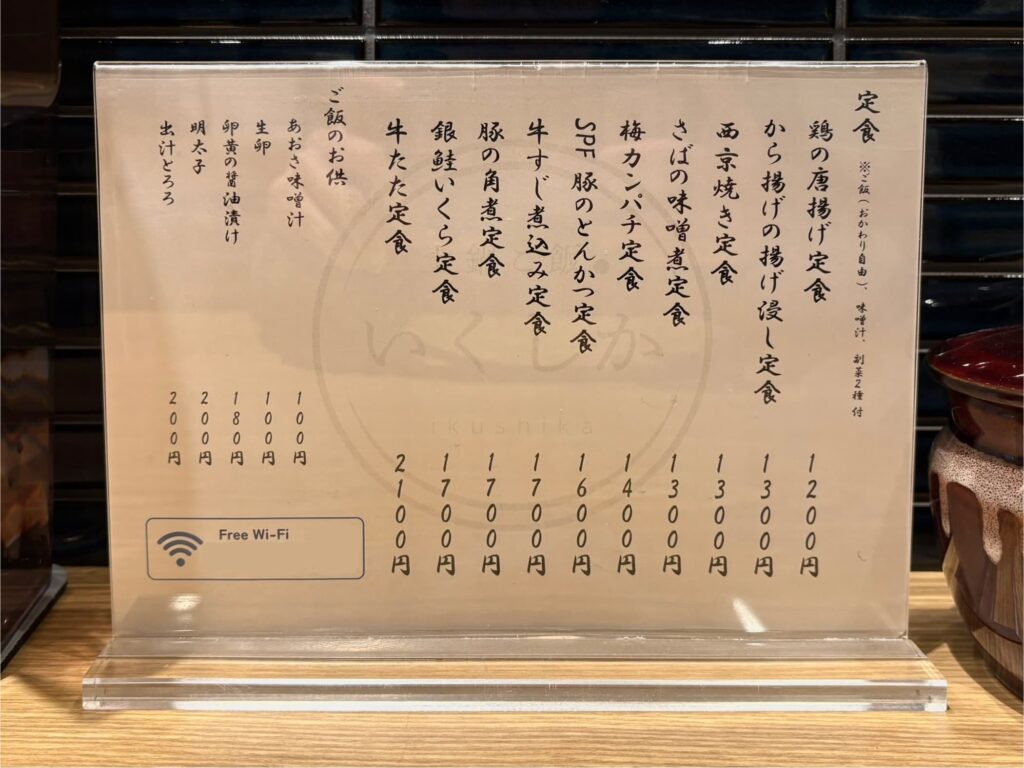 定食 ※ご飯(おかわり自由)、味噌汁、副菜2種付
鶏の唐揚げ定食 1200円
から揚げの揚げ浸し定食 1300円
西京焼き定食 1300円
さばの味噌煮定食 1300円
梅カンパチ定食 1400円
SPF豚のとんかつ定食 1600円
牛すじ煮込み定食 1700円
豚の角煮定食 1700円
銀鮭いくら定食 1700円
牛たた定食 2100円
ご飯のお供
あおさ味噌汁 100円
生卵 100円
卵黄の醤油漬け 180円
明太子 200円
出汁とろろ 200円
Free Wi-Fi
いくしか
ikushika